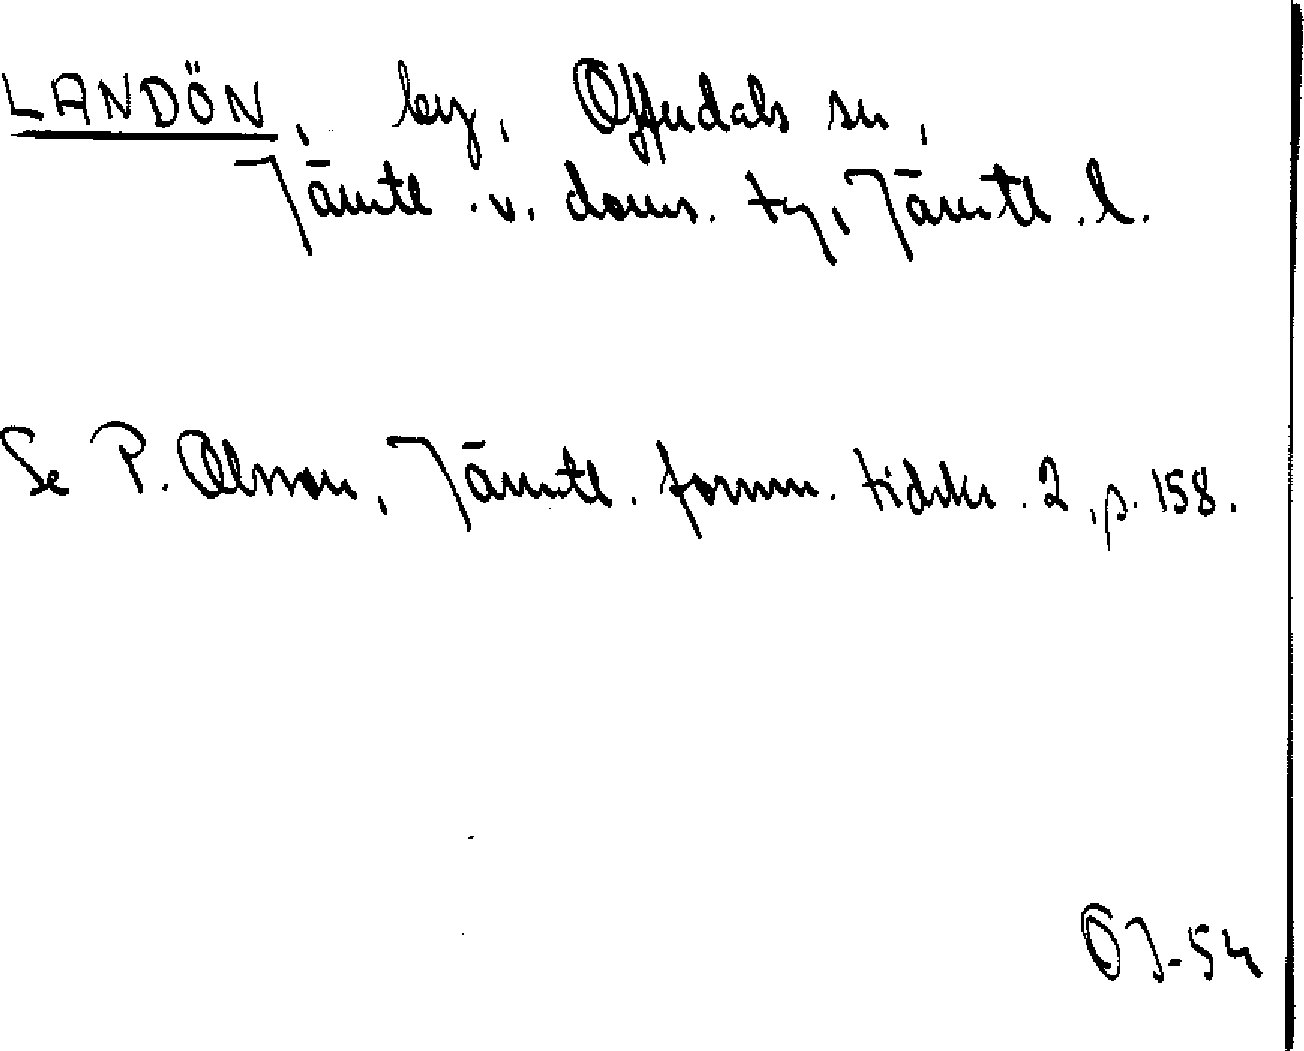 LANDÖN, by, Offerdals sn,
Jämtl. v. doms. tg, Jämtl. l.
Se P. Olsson, Jämtl. fornm. tidskr. 2, p. 158.
OJ-54